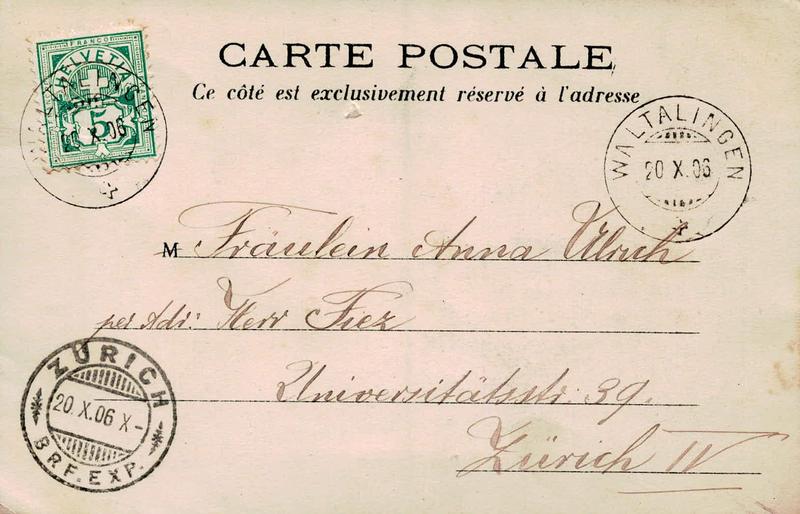 FRANCO
HELVETIA
5
CARTE POSTALE
Ce côté est exclusivement réservé à l'adresse
WALTALINGEN
20 X.06
M Fräulein Anna Ulrich
per Adr: Herr Fiez
Universitätsstr. 39.
Zürich IV
ZÜRICH
20.X.06 X-
BRF.EXP.